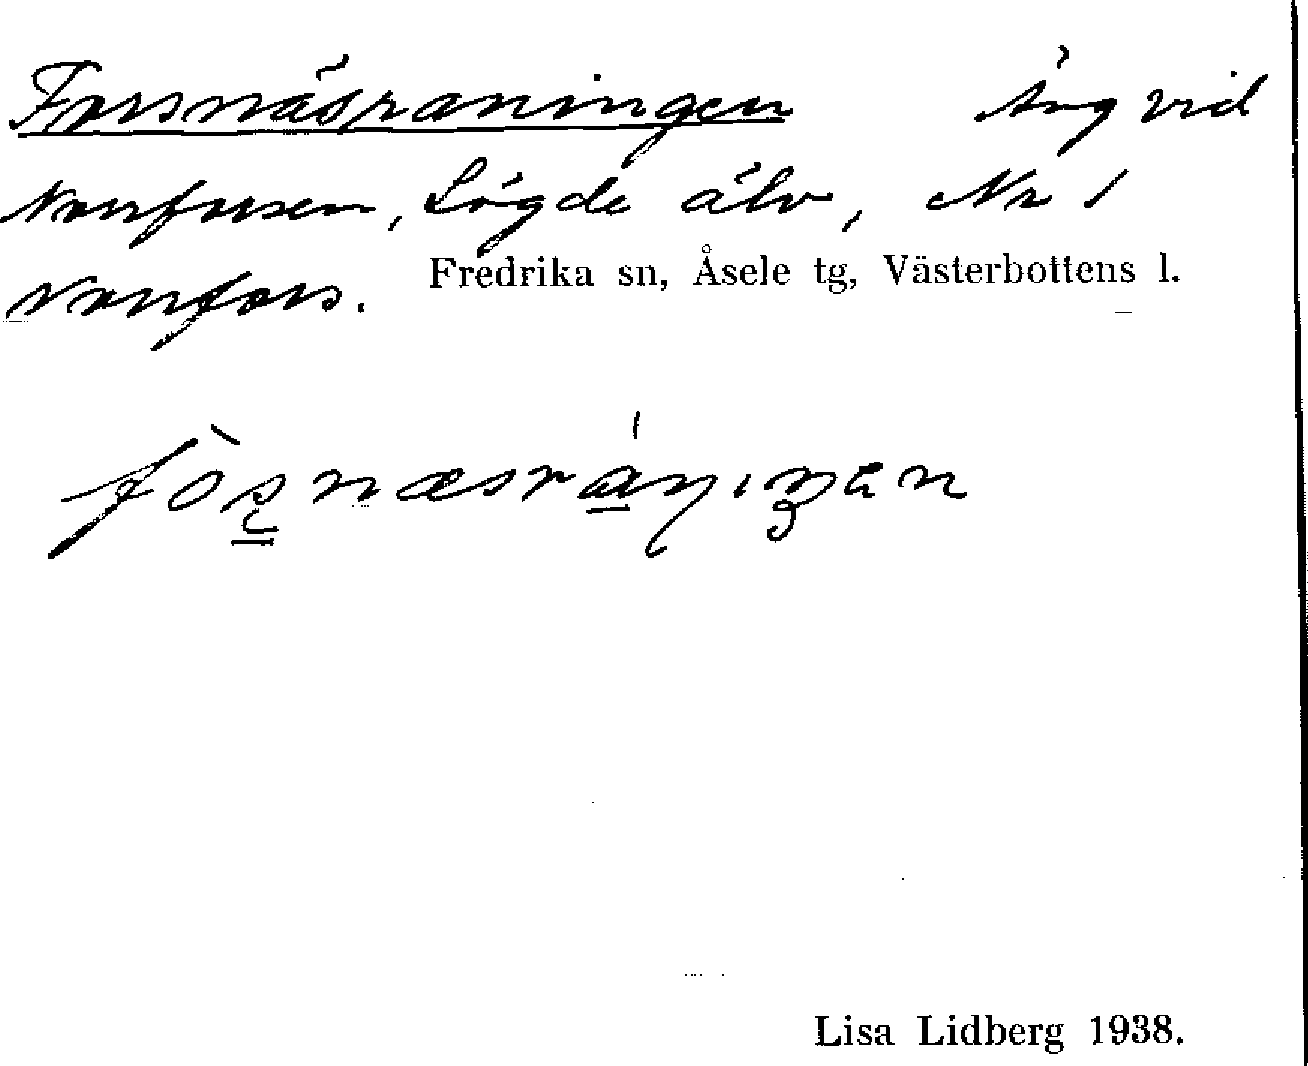 Forsnäsraningen Äng vid
Norrforsen, Lögde älv, Nr 1
Norrfors. Fredrika sn, Åsele tg, Västerbottens l.
Lisa Lidberg 1938.